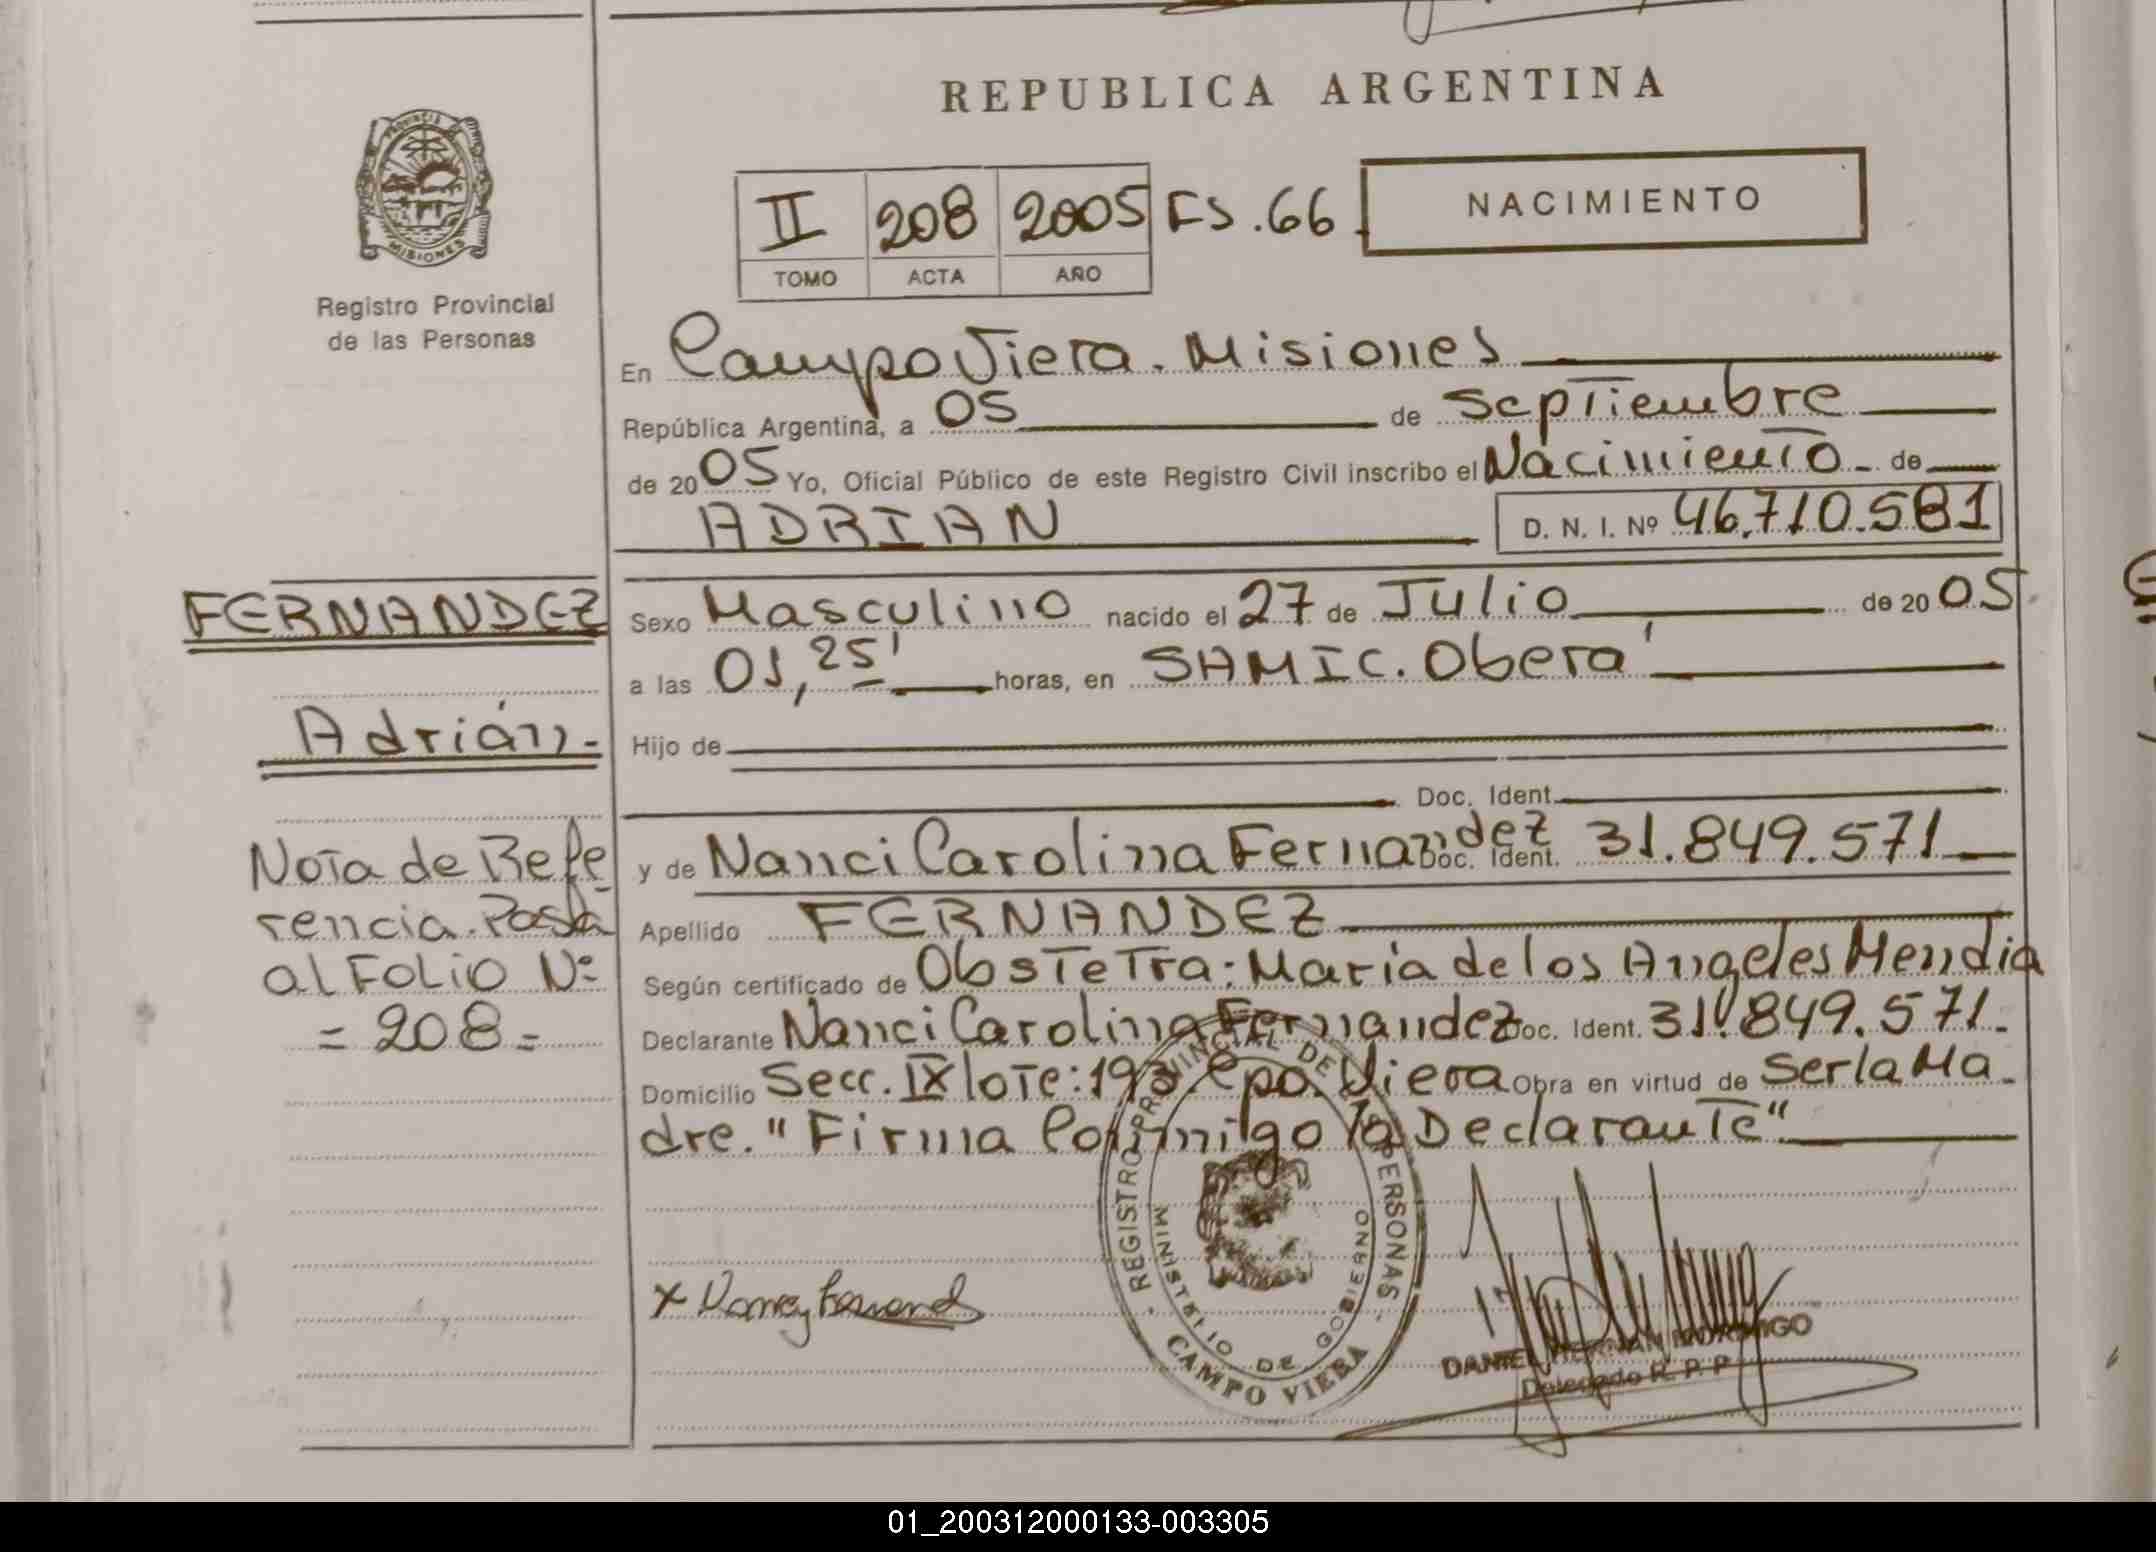 REPUBLICA ARGENTINA
PROVINCIA DE MISIONES
Registro Provincial
de las Personas
II 208 2005 FS.66.
TOMO ACTA AÑO
NACIMIENTO
En Campo Viera. Misiones
República Argentina, a 05 de Septiembre
de 2005 Yo, Oficial Público de este Registro Civil inscribo el Nacimiento - de
ADRIAN D. N. I. Nº 46.710.581
FERNANDEZ
Adrián.-
Nota de Refe
rencia. Pasa
al Folio Nº
= 208 =
Sexo Masculino nacido el 27 de Julio de 2005.
a las 01,25' horas, en SAMIC. Oberá
Hijo de
Doc. Ident.
y de Nanci Carolina Fernandez Doc. Ident. 31.849.571
Apellido FERNANDEZ
Según certificado de Obstetra: María de los Angeles Mendia
Declarante Nanci Carolina Fernandez Doc. Ident. 31.849.571.
Domicilio Secc. IX lote: 193 Cpo. Viera Obra en virtud de Ser la Ma
dre. "Firma Conmigo la Declarante"
REGISTRO PROVINCIAL DE LAS PERSONAS
MINISTERIO DE GOBIERNO
CAMPO VIERA
x
DANIEL HERNAN MORINIGO
Delegado R. P. P.
01_200312000133-003305